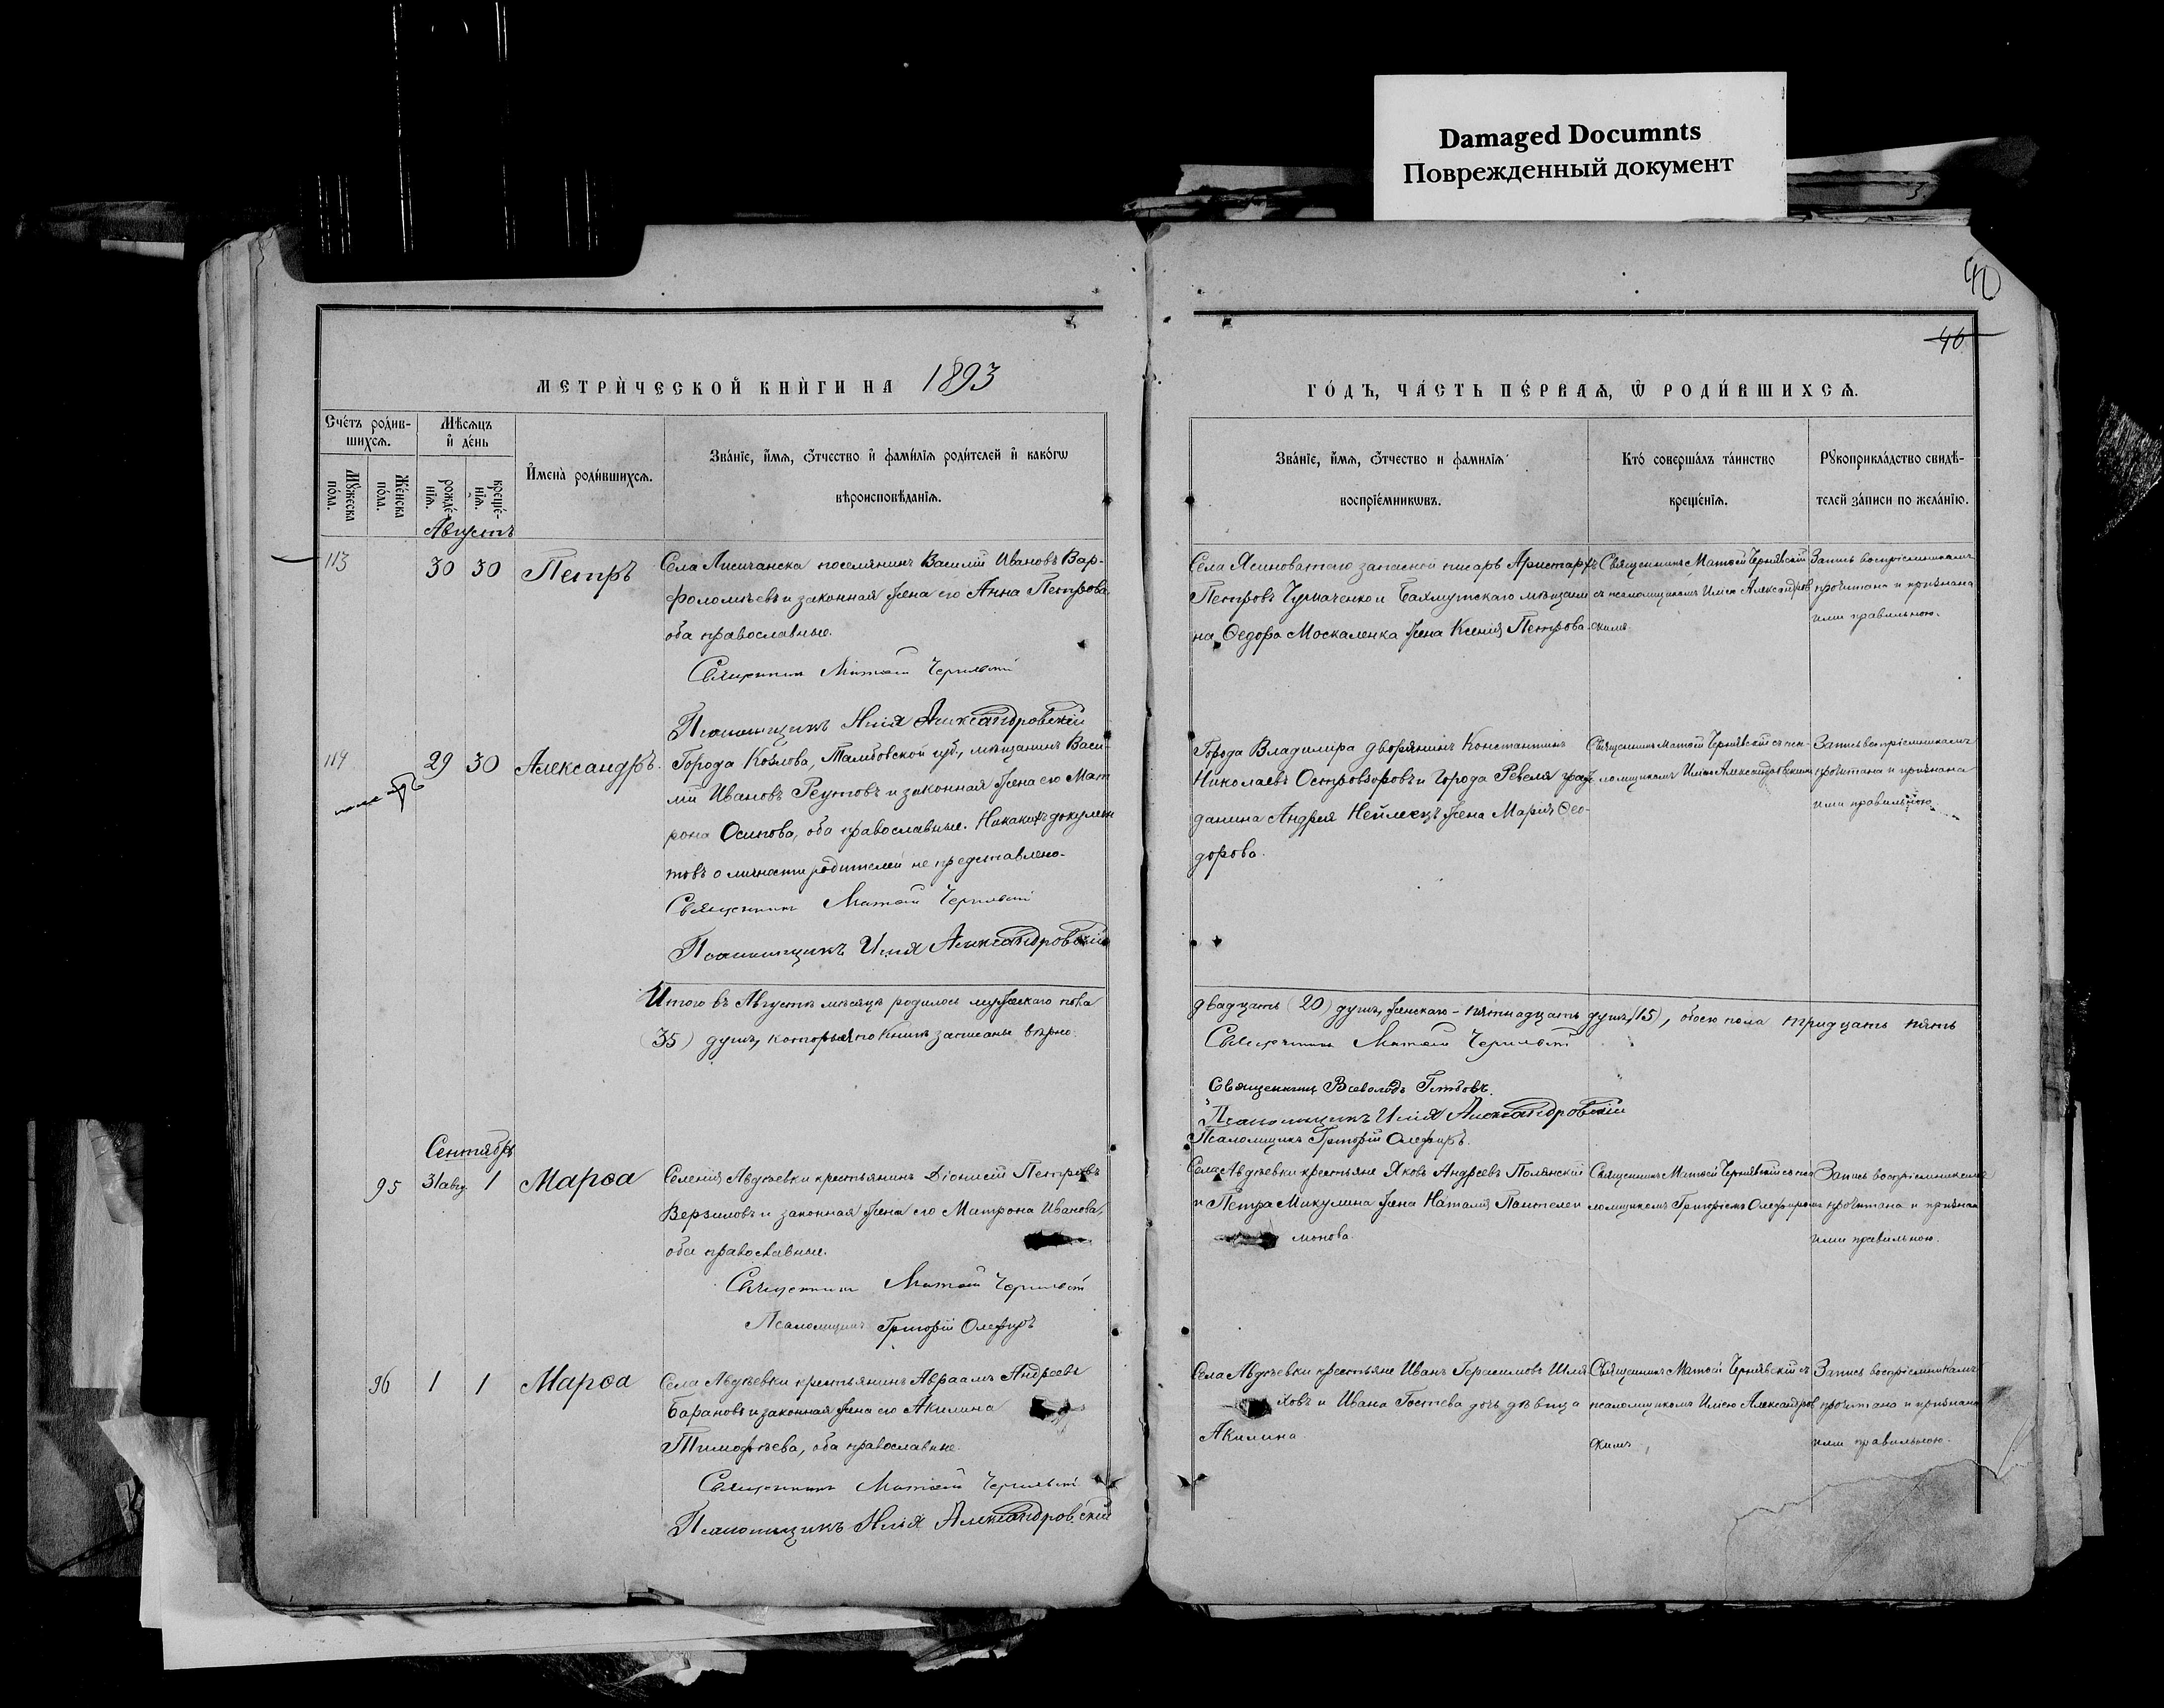 Damaged Documnts
Поврежденный документ
40
46
МЕТРИЧЕСКОЙ КНИГИ НА 1893
ГОДЪ, ЧАСТЬ ПЕРВАЯ, Ѡ РОДИВШИХСЯ.
Счетъ родив-
шихся.
Мѣсяцъ
и день
Мужеска
пола.
Женска
пола.
рожде-
нія.
креще-
нія.
Имена родившихся.
Званіе, имя, отчество и фамилія родителей и какогѡ
вѣроисповѣданія.
Званіе, имя, отчество и фамилія
воспріемникѡвъ.
Кто совершалъ таинство
крещенія.
Рукоприкладство свидѣ-
телей записи по желанію.
Августъ
113 30 30 Петръ
Села Лисичанска поселянинъ Василій Ивановъ Вар-
фоломѣевъ и законная жена его Анна Петрова,
оба православные.
Священникъ Матѳей Чернявскій
Псаломщикъ Илія Александровскій
Села Ясиноватаго запасной писарь Аристархъ
Петровъ Чумаченко и Бахмутскаго мѣщани
на Ѳедора Москаленка жена Ксенія Петрова.
Священникъ Матѳей Чернявскій
съ псаломщикомъ Иліею Александров
скимъ
Запись воспріемникамъ
прочитана и признана
ими правильною.
114 29 30 Александръ.
Города Козлова, Тамбовской губ., мѣщанинъ Васи-
лій Ивановъ Реутовъ и законная жена его Мат
рона Осипова, оба православные. Никакихъ докумен
товъ о личности родителей не представлено.
Священникъ Матѳей Чернявскій
Псаломщикъ Илія Александровскій
Города Владиміра дворянинъ Константинъ
Николаевъ Островзоровъ и города Ревеля граж
данина Андрея Нейлецъ жена Марія Ѳео-
дорова.
Священникъ Матѳей Чернявскій съ пса
ломщикомъ Иліею Александровскимъ
Запись воспріемникамъ
прочитана и признана
ими правильною
Итого въ Августѣ мѣсяцѣ родилось мужескаго пола
двадцать (20) душъ, женскаго - пятнадцать душъ (15), обоего пола тридцать пять
(35) душъ, которыя по книгѣ записаны вѣрно.
Священникъ Матѳей Чернявскій
Священникъ Всеволодъ
Псаломщикъ Илія Александровскій
Псаломщикъ Григорій Олефиръ.
Сентябрь
95 31 авг. 1 Марѳа
Селенія Авдѣевки крестьянинъ Діонисій Петровъ
Верзиловъ и законная жена его Матрона Иванова,
оба православные.
Священникъ Матѳей Чернявскій
Псаломщикъ Григорій Олефиръ
Села Авдѣевки крестьяне Яковъ Андреевъ Полянскій
и Петра Микулина жена Наталія Пантелеи
монова.
Священникъ Матѳей Чернявскій съ пса
ломщикомъ Григоріемъ Олефиромъ
Запись воспріемниками
прочитана и признана
ими правильною.
96 1 1 Марѳа
Села Авдѣевки крестьянинъ Авраамъ Андреевъ
Барановъ и законная жена его Акилина
Тимофѣева, оба православные.
Священникъ Матѳей Чернявскій
Псаломщикъ Илія Александровскій
Села Авдѣевки крестьяне Иванъ Герасимовъ Шля
ховъ и Ивана Гостева дочь дѣвица
Акилина.
Священникъ Матѳей Чернявскій съ
псаломщикомъ Иліею Александров
скимъ
Запись воспріемникамъ
прочитана и признана
ими правильною.